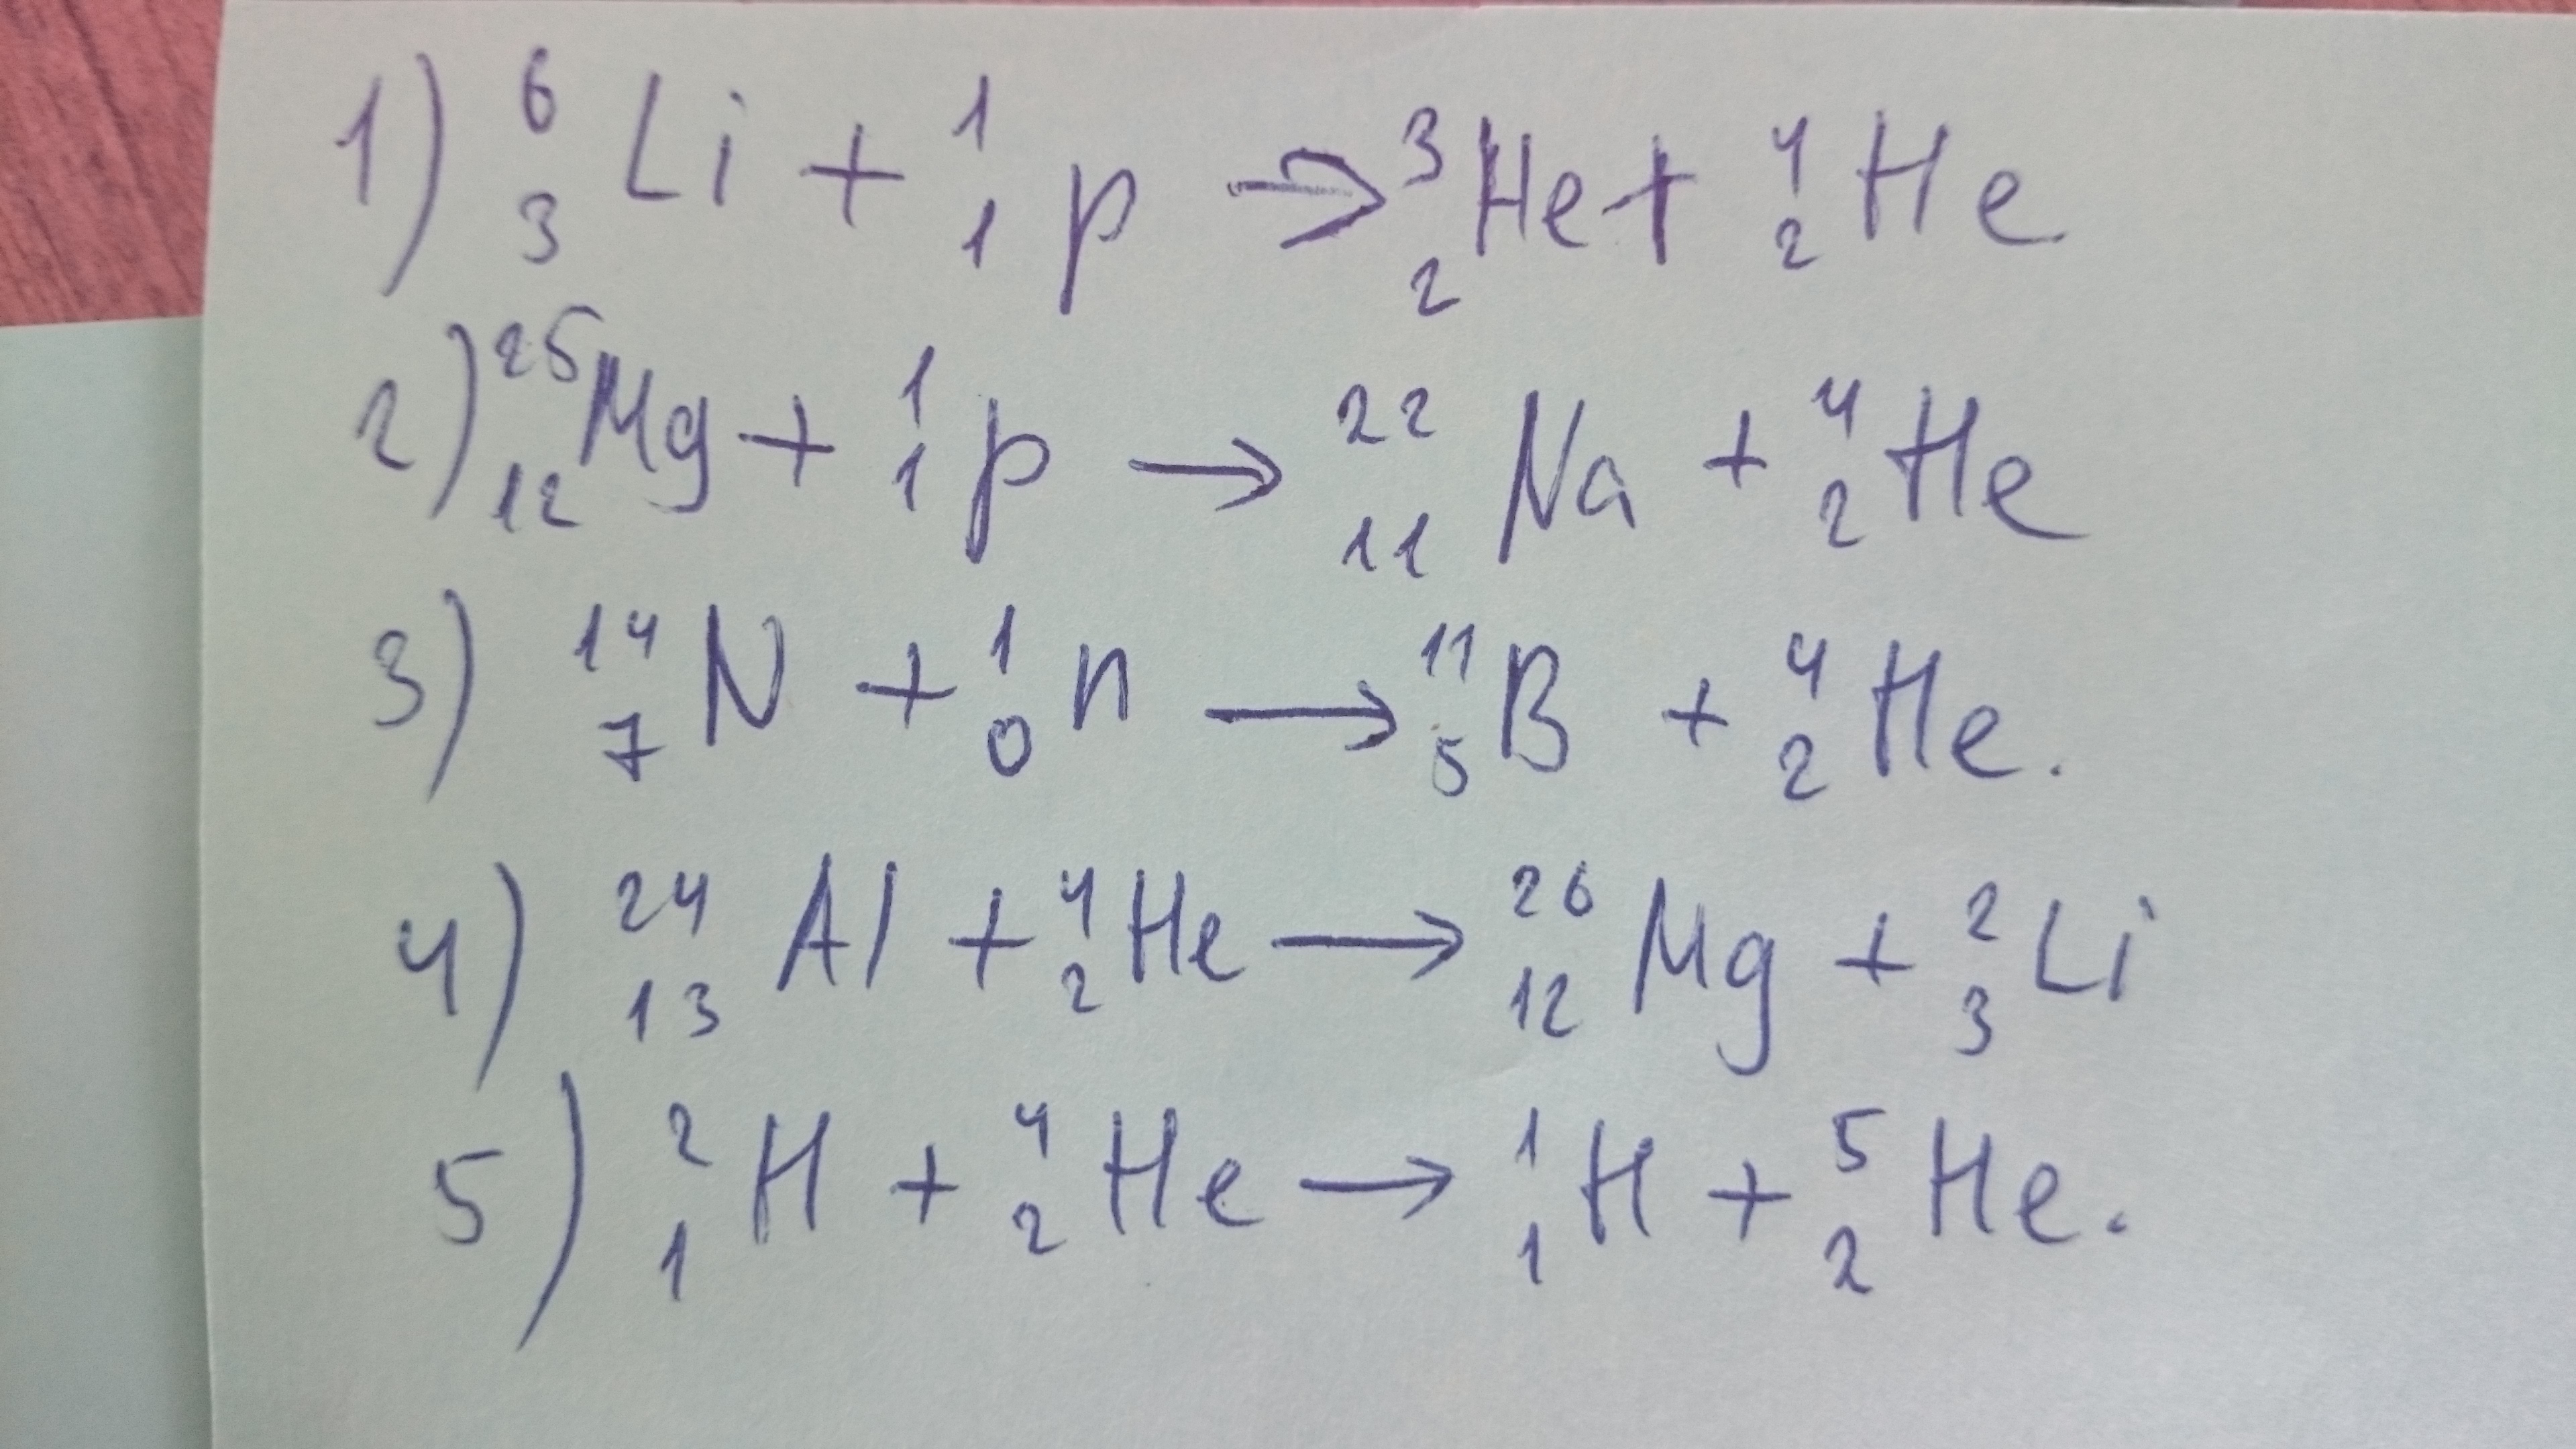 1) ⁶₃Li + ¹₁p → ³₂He + ⁴₂He
2) ²⁵₁₂Mg + ¹₁p → ²²₁₁Na + ⁴₂He
3) ¹⁴₇N + ¹₀n → ¹¹₅B + ⁴₂He.
4) ²⁴₁₃Al + ⁴₂He → ²⁶₁₂Mg + ²₃Li
5) ²₁H + ⁴₂He → ¹₁H + ⁵₂He.